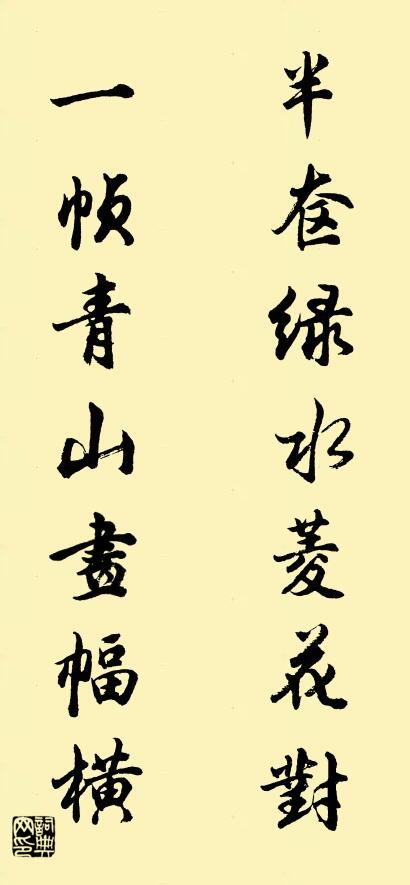 半奁绿水菱花對
一帧青山畫幅横
詞典
网印